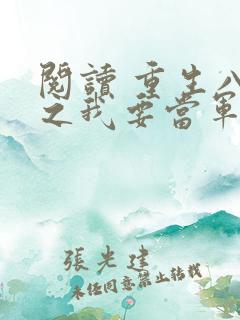 閱讀 重生八
之我要當軍
張光建
未經同意禁止轉載